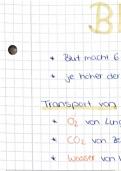 Bl
* Blut macht 6
* je höher der
Transport von
* O₂ von Lun
* CO₂ von Ze
* Wasser von